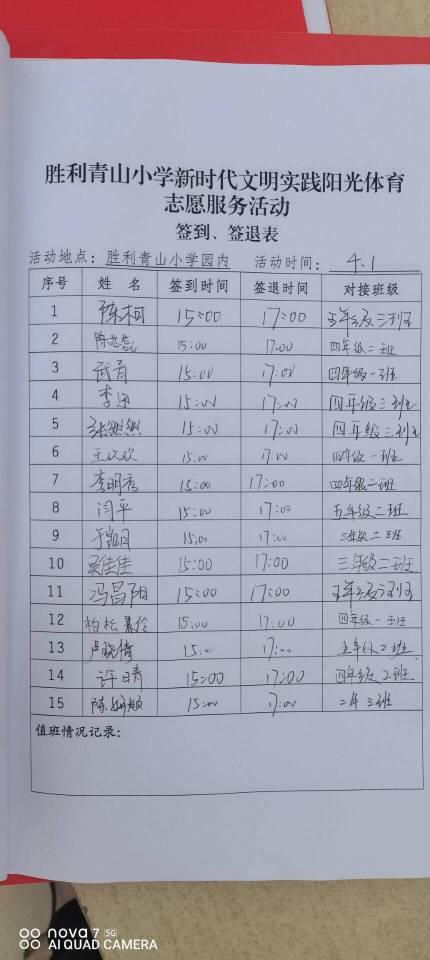 胜利青山小学新时代文明实践阳光体育
志愿服务活动
签到、签退表
活动地点：胜利青山小学园内 活动时间：4.1
序号 姓名 签到时间 签退时间 对接班级
1 陈柯 15:00 17:00 五年级三班
2 陈 15:00 17:00 四年级二班
3 武 15:00 17:00 四年级一班
4 李 15:00 17:00 四年级三班
5 张然然 15:00 17:00 四年级三班
6 王欢欢 15:00 17:00 四年级一班
7 李明秀 15:00 17:00 四年级二班
8 闫平 15:00 17:00 五年级二班
9 于 15:00 17:00 三年级二班
10 吴佳佳 15:00 17:00 三年级二班
11 冯昌阳 15:00 17:00 五年级班
12 柏松 15:00 17:00 四年级一班
13 卢晓倩 15:00 17:00 五年级2班
14 许晴 15:00 17:00 四年级2班
15 陈 15:00 17:00 二年三班
值班情况记录：
nova 7 5G
AI QUAD CAMERA